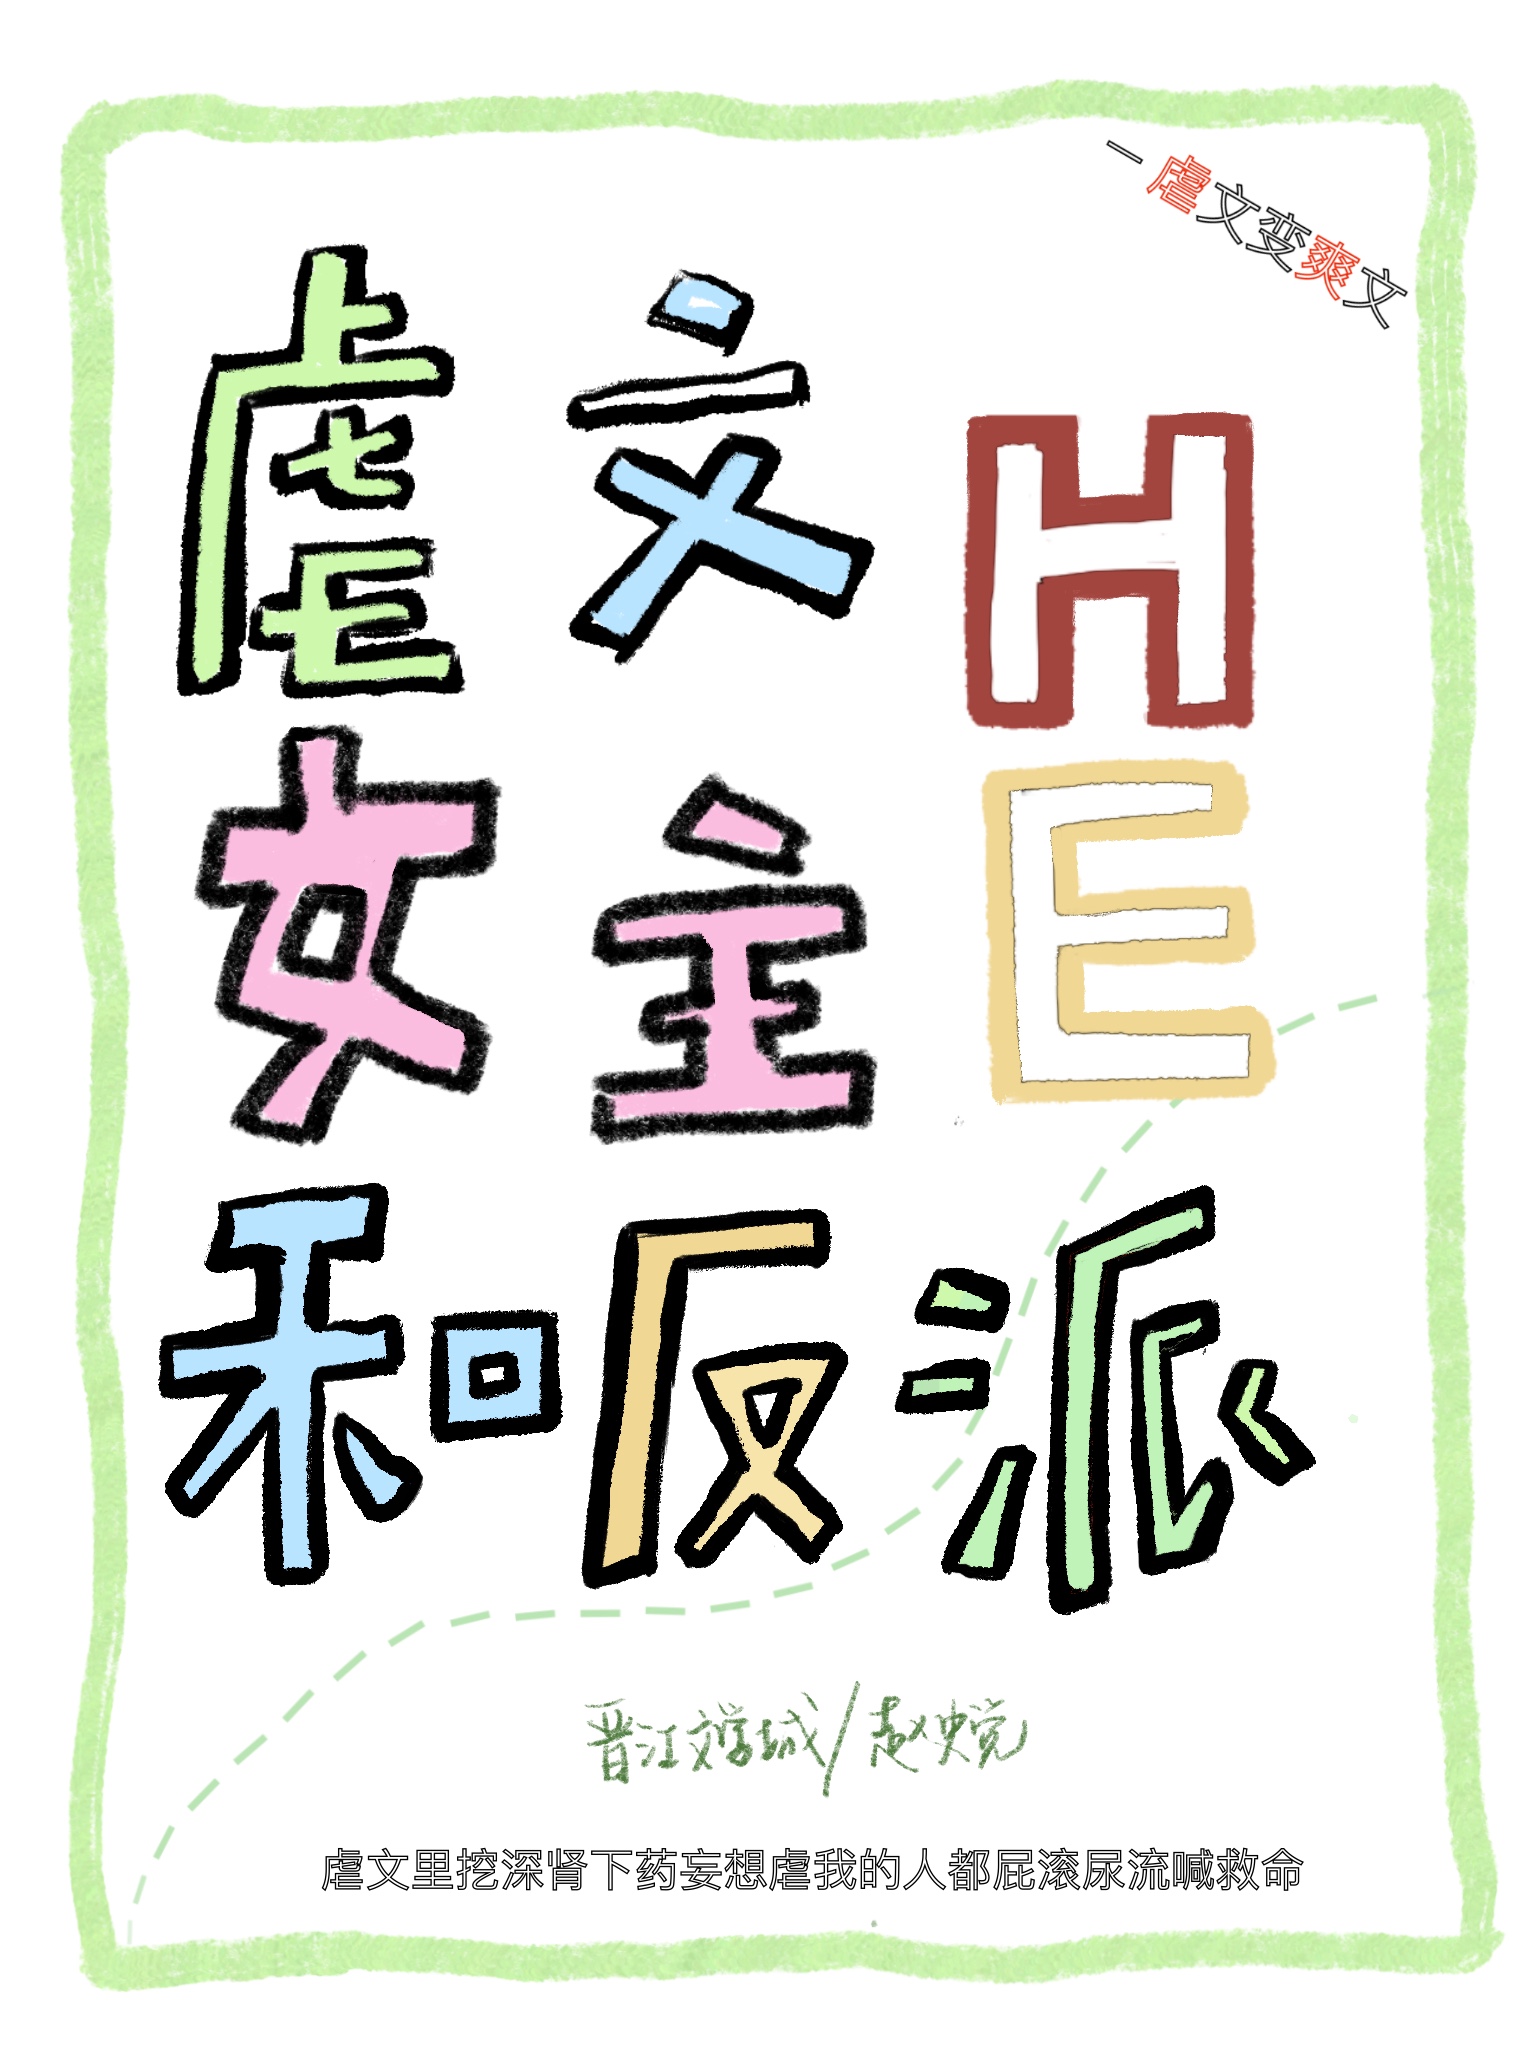 一虐文变爽文
虐文
女主
HE
和反派
晋江文学城/赵史觉
虐文里挖深肾下药妄想虐我的人都屁滚尿流喊救命